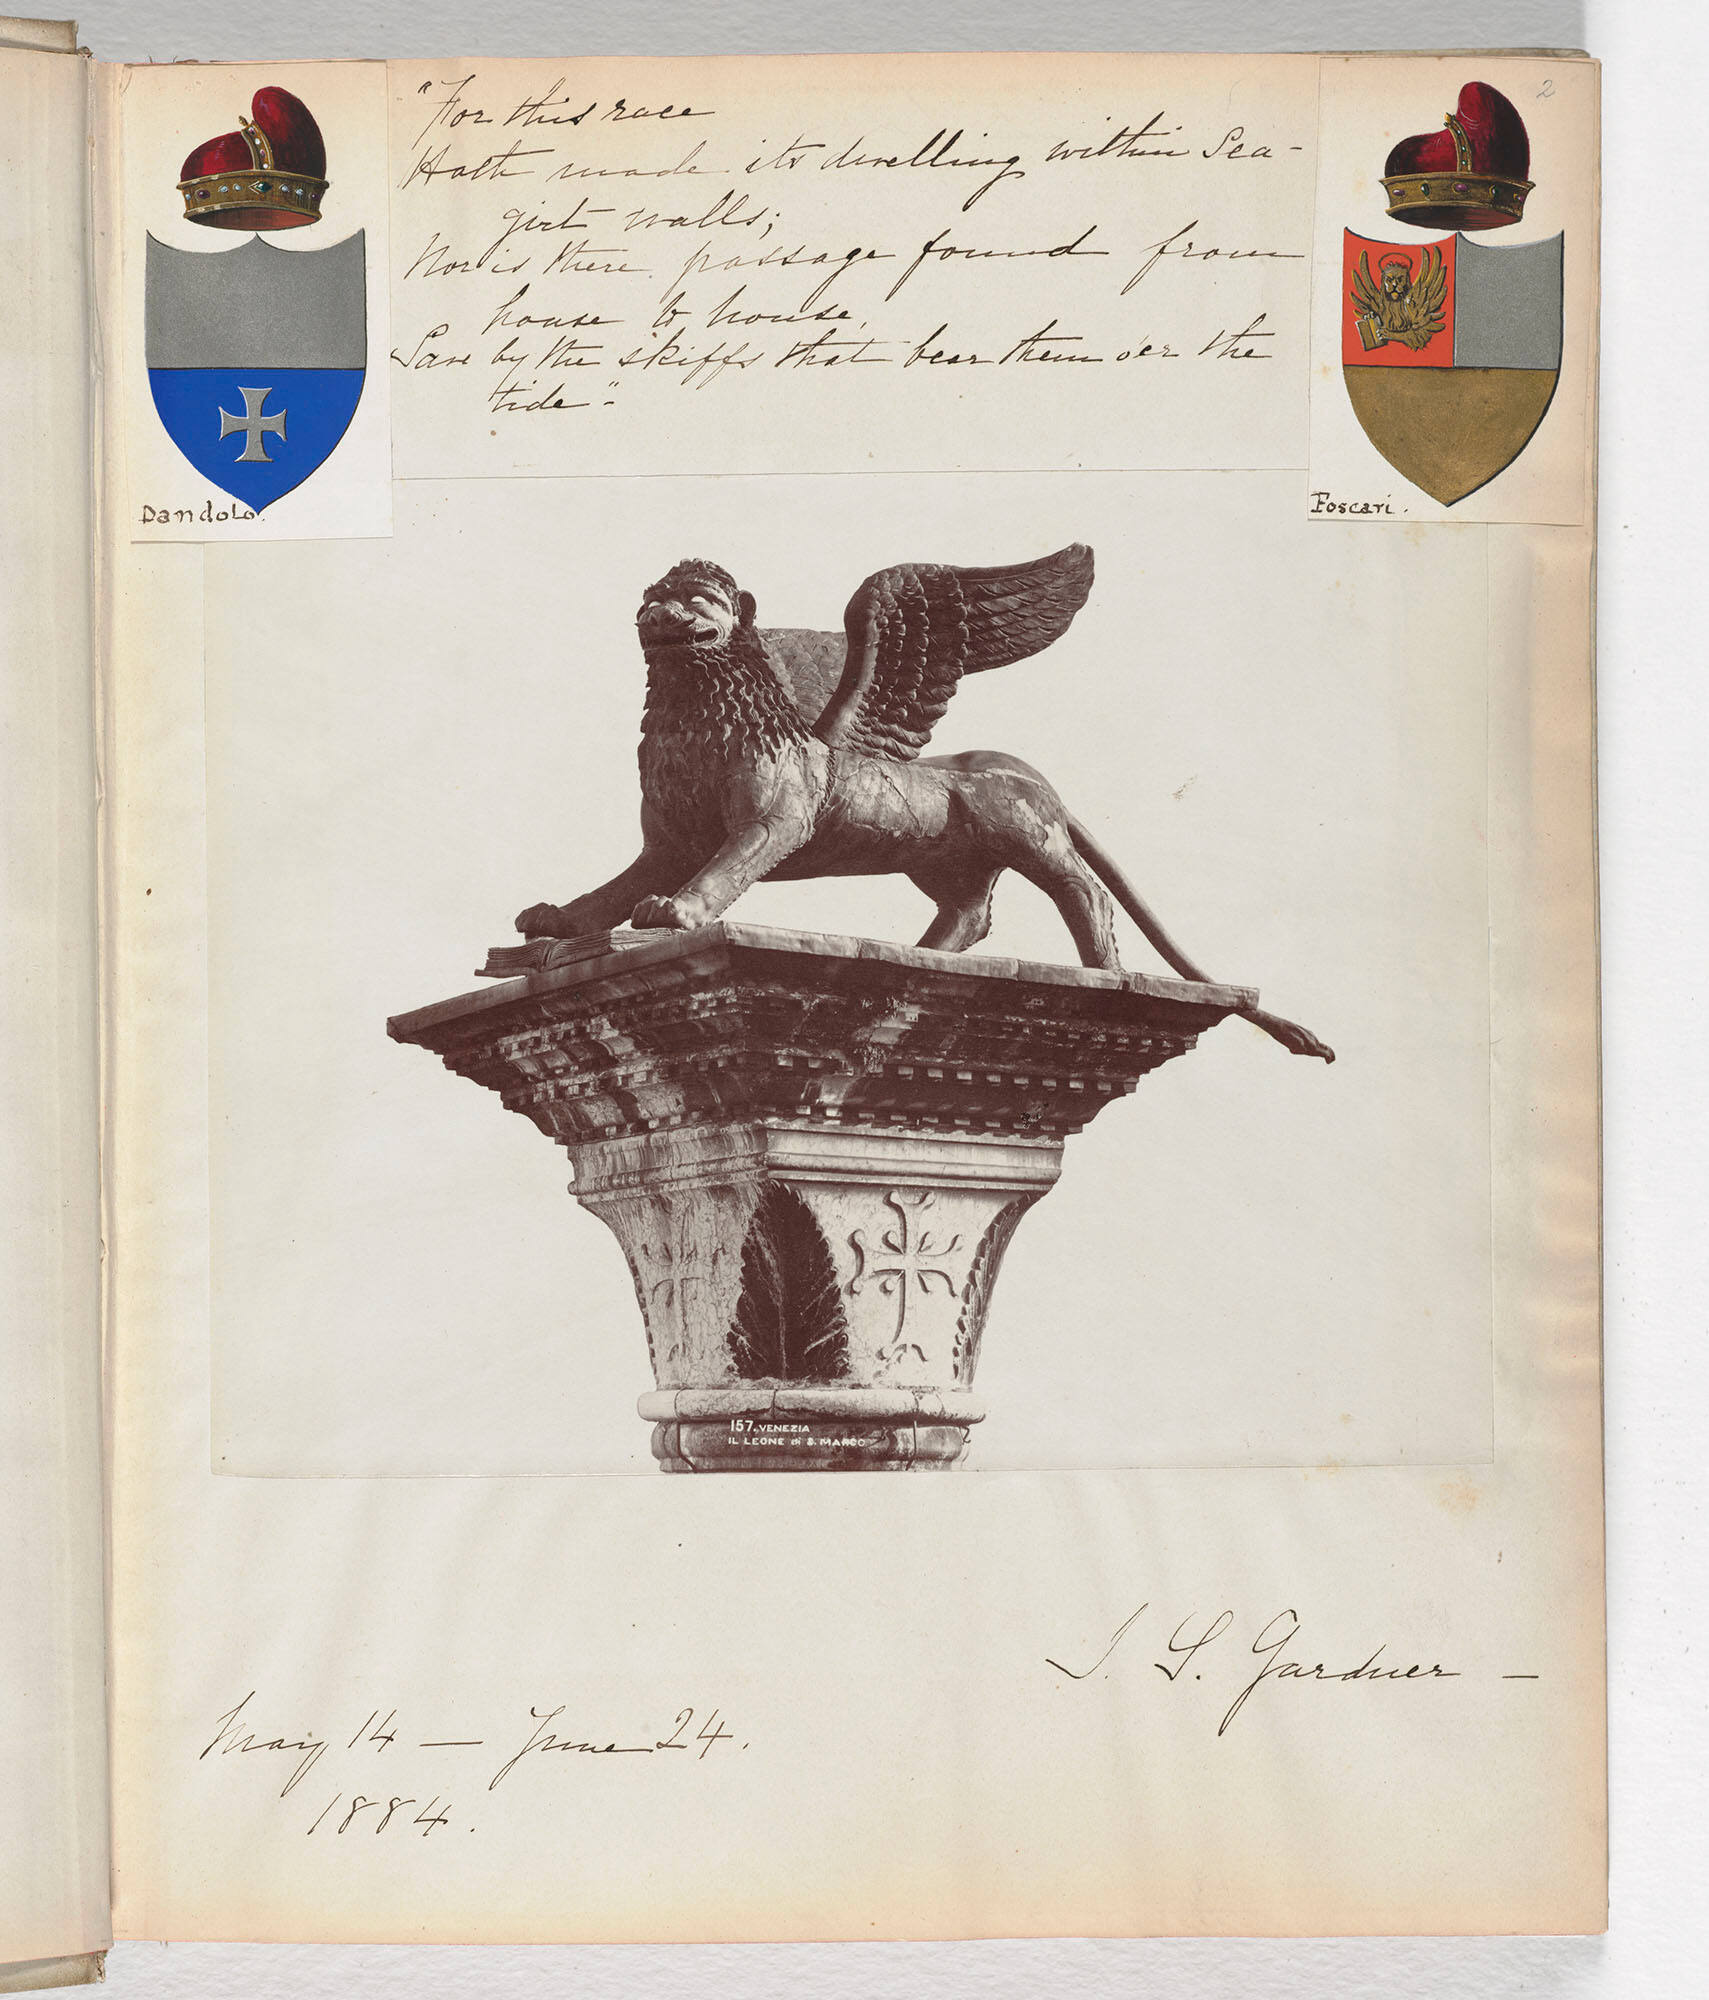 2
"For this race
Hath made its dwelling within Sea-
girt walls;
Nor is there passage found from
house to house,
Save by the skiffs that bear them o'er the
tide".
Dandolo.
Foscari.
157. VENEZIA
IL LEONE di S. MARCO
I. S. Gardner —
May 14 — June 24.
1884.